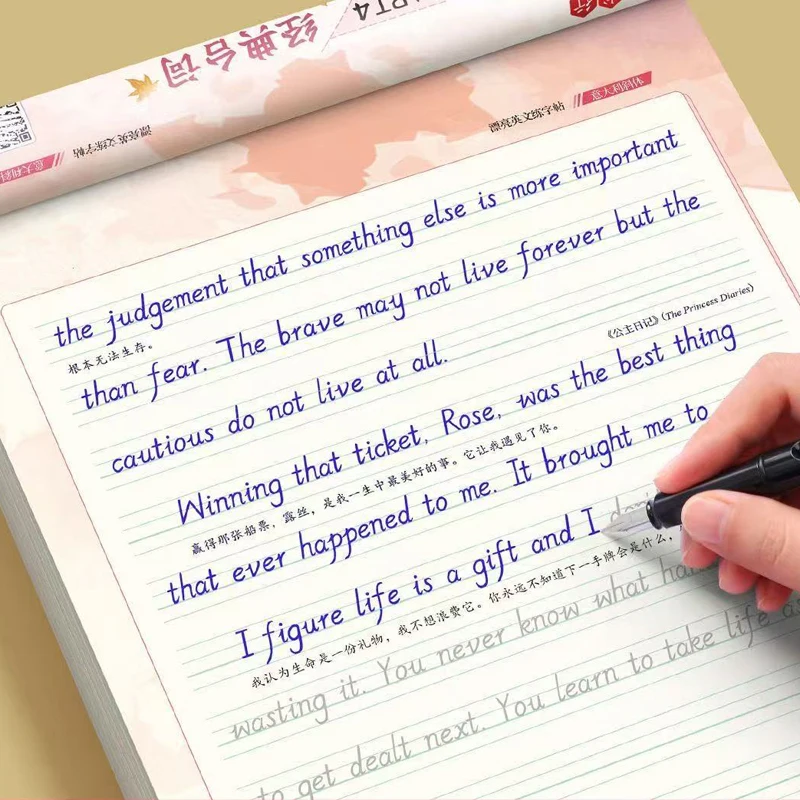 ART4
经典台词
漂亮英文练字帖
漂亮英文练字帖
the judgement that something else is more important
根本无法生存。
than fear. The brave may not live forever but the
《公主日记》(The Princess Diaries)
cautious do not live at all.
Winning that ticket, Rose, was the best thing
赢得那张船票，露丝，是我一生中最美好的事。它让我遇见了你。
that ever happened to me. It brought me to
I figure life is a gift and I
我认为生命是一份礼物，我不想浪费它。你永远不知道下一手牌会是什么，
wasting it. You never know what
to get dealt next. You learn to take life